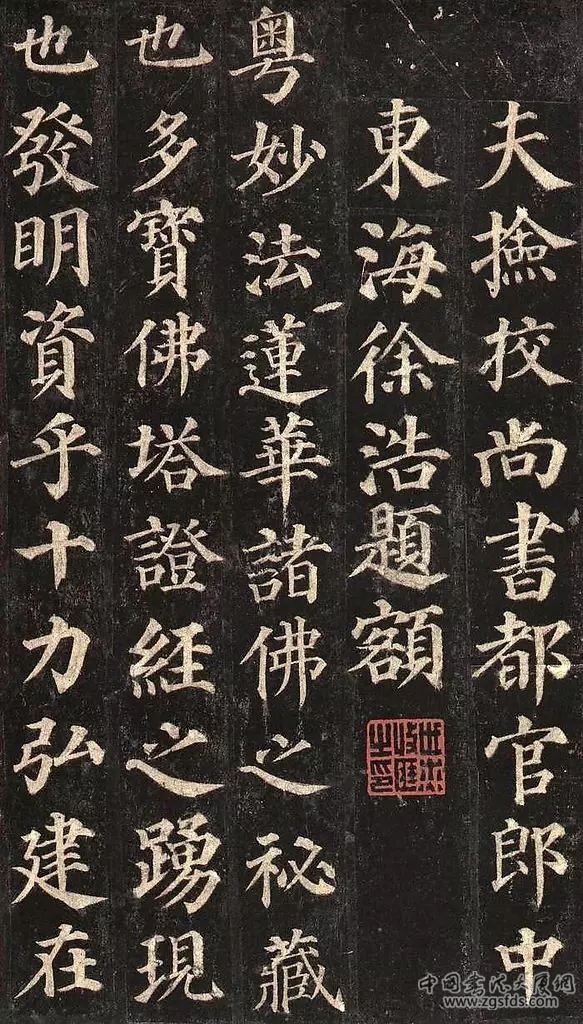 夫撿挍尚書都官郎中
東海徐浩題額
粤妙法蓮華諸佛之祕藏
也多寶佛塔證經之踴現
也發明資乎十力弘建在
中国书法大展网
www.zgsfds.com